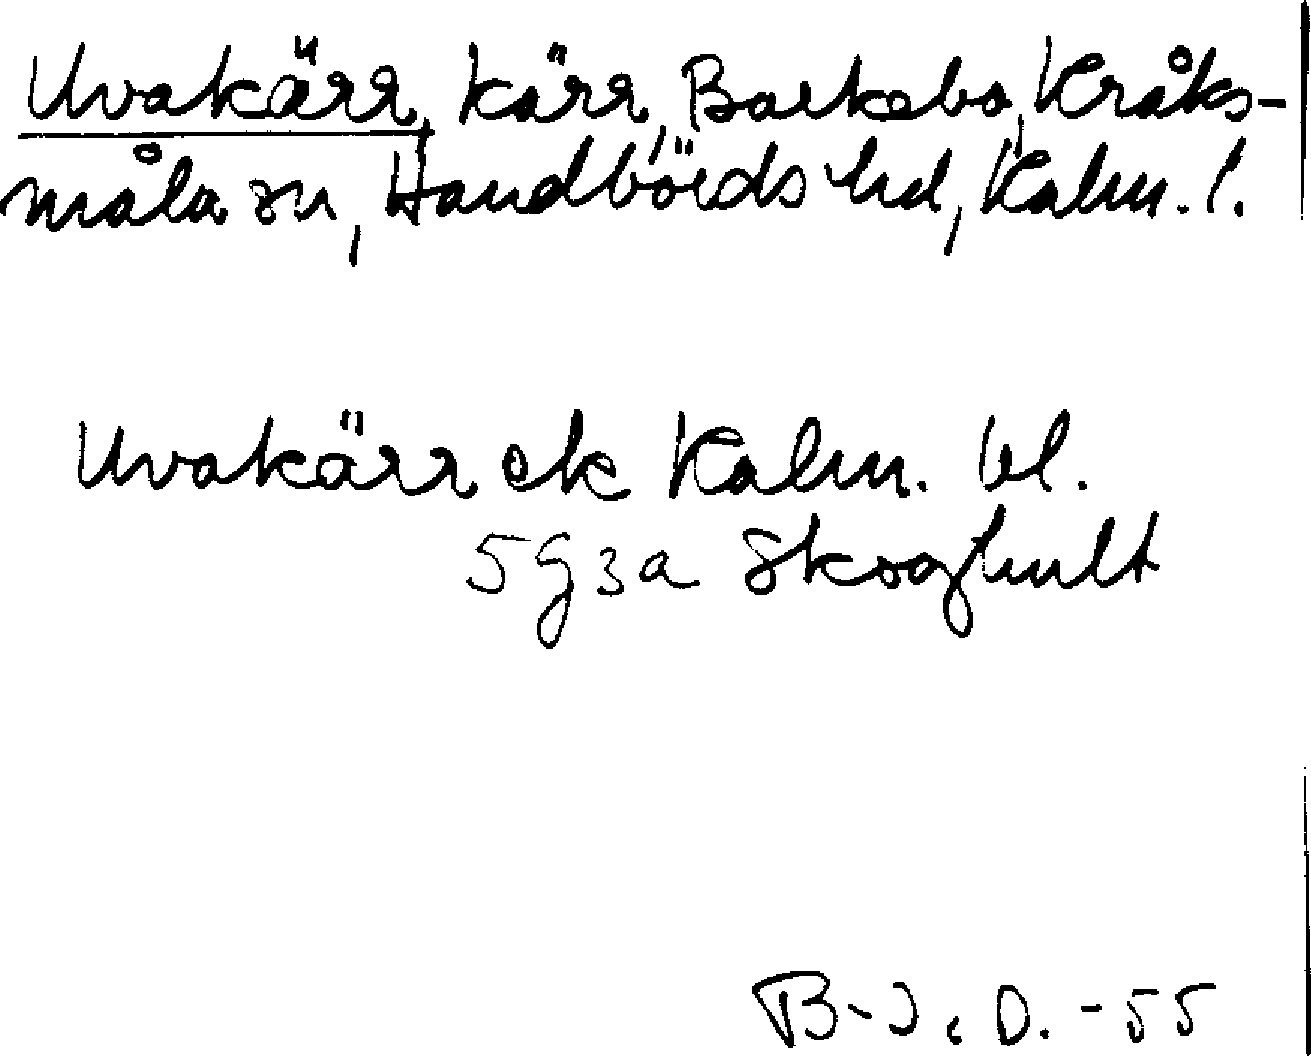 Uvakärr, kärr, Barkebo, Kråks-
måla sn, Handbörds hd, Kalm. l.
Uvakärr ek Kalm. bl.
5G3a Skoghult
B-J. D. -55